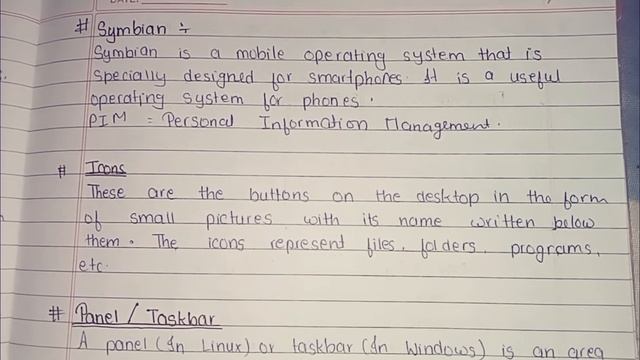 DATE:
# Symbian ÷
Symbian is a mobile operating system that is
specially designed for smartphones. It is a useful
operating system for phones.
PIM = Personal Information Management.
# Icons
These are the buttons on the desktop in the form
of small pictures with its name written below
them. The icons represent files, folders, programs,
etc.
# Panel / Taskbar
A panel (In Linux) or taskbar (In Windows) is an area